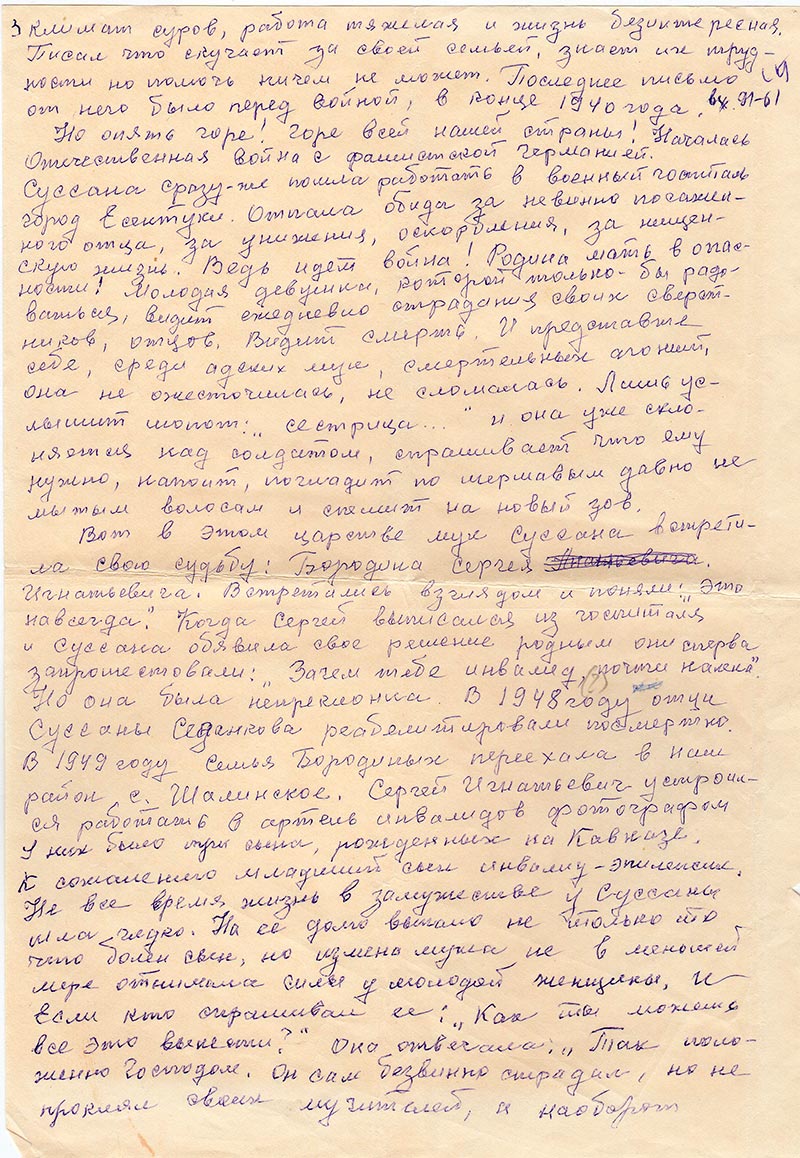 3 Климат суров, работа тяжелая и жизнь безинтересная.
Писал что скучает за своей семьей, знает их труд-
ности но помочь ничем не может. Последнее письмо
от него было перед войной, в конце 1940 года. вх. 91-61
Но опять горе! Горе всей нашей страны! Началась
Отечественная война с фашистской германией.
Суссана сразу-же пошла работать в военный госпиталь
город Есентуки. Отпала обида за невинно посажен-
ного отца, за унижения, оскорбления, за нищен-
скую жизнь. Ведь идет война! Родина мать в опас-
ности! Молодая девушка, которой только-бы радо-
ваться, видит ежедневно страдания своих сверст-
ников, отцов. Видит смерть. И представте
себе, среди адских мук, смертельных агоний,
она не ожесточилась, не сломалась. Лишь ус-
лышит шопот: „сестрица..." и она уже скло-
няется над солдатом, спрашивает что ему
нужно, напоит, погладит по шершавым давно не
мытым волосам и спешит на новый зов.
Вот в этом царстве мук Суссана встрети-
ла свою судьбу: Бородина Сергея
Игнатьевича. Встретились взглядом и поняли: „Это
навсегда". Когда Сергей выписался из госпиталя
и Суссана обявила свое решение родным они сперва
запротестовали: „Зачем тебе инвалид, почти калека".
Но она была непреклонна. В 1948 году отца (?)
Суссаны Седанкова реабелитировали посмертно.
В 1949 году семья Бородиных переехала в наш
район с. Шалинское. Сергей Игнатьевич устроил-
ся работать в артель инвалидов фотографом
У них было три сына, рожденных на Кавказе.
К сожалению младший сын инвалид-эпилепсик.
Не все время жизнь в замужестве у Суссаны
шла гладко. На ее долю выпало не только то
что болен сын, но измена мужа не в меньшей
мере отнимала силы у молодой женщины. И
Если кто спрашивал ее: „Как ты можешь
все это вынести?" Она отвечала: „Так поло-
женно Господом. Он сам безвинно страдал, но не
проклял своих мучителей, а наоборот